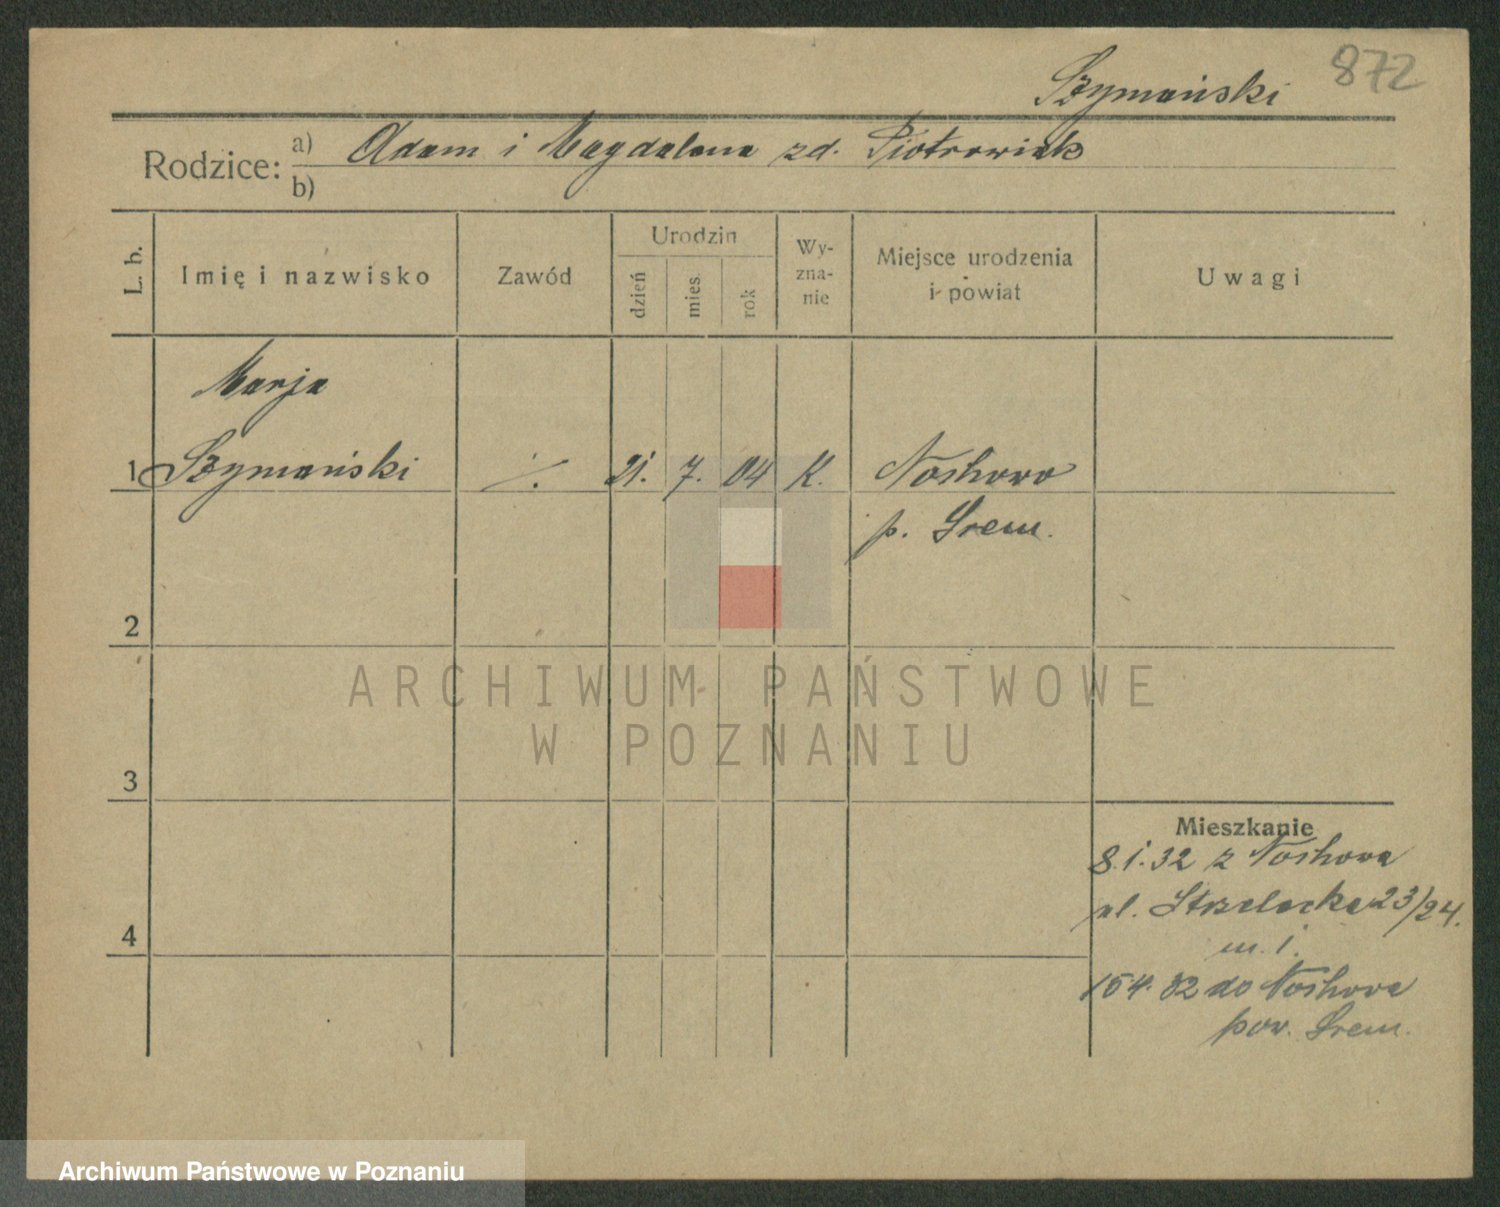 Szymański 872
Rodzice: a) Adam i Magdalena zd. Piotrowiak
b)
L. b. Imię i nazwisko Zawód Urodzin dzień mies. rok Wy-
zna-
nie Miejsce urodzenia
i powiat Uwagi
Marja
1 Szymański ./. 21. 7. 04 K. Nochowo
p. Śrem.
2
3
4
Mieszkanie
8.1.32 z Nochowa
ul. Strzelecka 23/24.
m. 1.
15 4. 32 do Nochowa
pow. Śrem.
ARCHIWUM PAŃSTWOWE
W POZNANIU
Archiwum Państwowe w Poznaniu